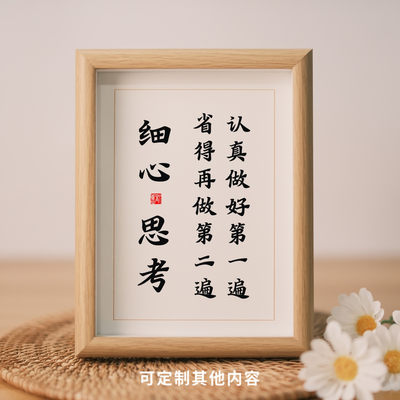 认真做好第一遍
省得再做第二遍
细心思考
可定制其他内容